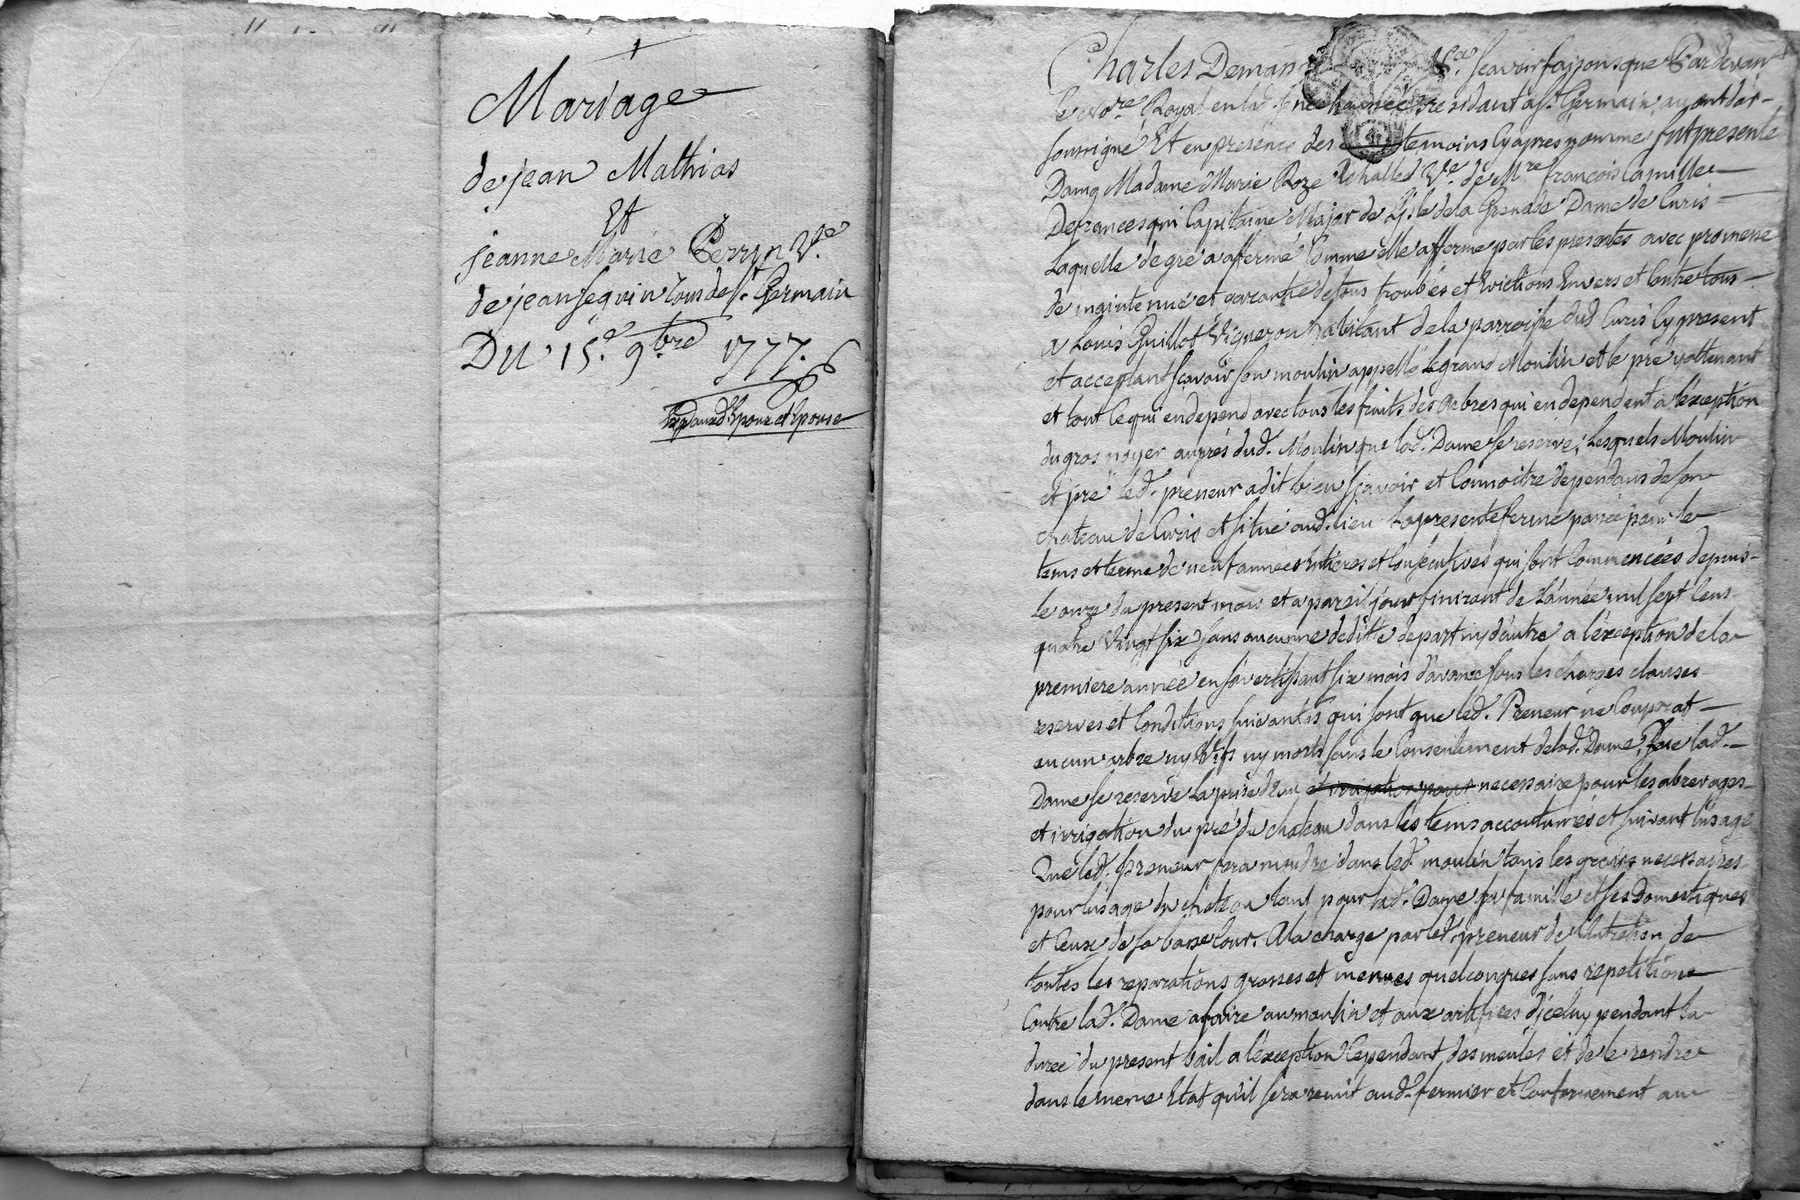 Mariage
de jean Mathias
Et
jeanne Marie Perrin V.e
de jean seguin tous de st. Germain
Du 15.e 9bre 1777.
Expd. aud. Epoux et Epouse
Charles Deman sca. scavoir faisons que Pardevan
le No.re Royal en lad. senechaussée residant a st. Germain au mont dor
soussigné Et en presence des temoins cy apres nommé fut presente
Dame Madame Marie Roze V.e de M.re francois Camille
Defrancesqui Capitaine Major de L'isle de la Grenade Dame de Curis
Laquelle de gré a affermé comme elle afferme par les presentes avec promesse
de maintenue et garantie de tous troubles et Evictions Envers et Contre tous
a Louis Guillot Vigneron habitant de la parroisse dud. Curis Cy present
et acceptant scavoir son moulin appellé Le grand Moulin et le pré y attenant
et tout ce qui en depend avec tous les fruits des arbres qui en dependent a l'exception
du gros noyer auprés dud. Moulin que lad. Dame se reserve, Lesquels Moulin
et pré led. preneur a dit bien scavoir et Connoitre dependans de son
chateau de Curis et situé aud. lieu La presente ferme passée pour le
tems et terme de neuf années Entieres et Consecutives qui sont Commencées depuis
le onze du present mois et a pareil jour finiront de L'année mil sept Cens
quatre Vingt six sans aucune deditte de part ny d'autre a l'exception de la
premiere année en s'avertissant six mois d'avance sous les charges clauses
reserves et Conditions suivantes qui sont que led. Preneur ne Couperat
aucun arbre ny Vifs ny morts sans le Consentement de lad. Dame, que lad.
Dame se reserve La prise d'Eau et irrigation pour necessaire pour les abrevages
et irrigation du pré du chateau dans les tems accoutumés et suivant l'usage
Que led. preneur fera moudre dans led. moulin tous les grains necessaires
pour l'usage du chateau tant pour lad. Dame sa famille et ses Domestiques
et Ceux de sa basse Cour. A la charge par led. preneur de L'entretien de
toutes les reparations grosses et menues quelconques sans repetition
Contre lad. Dame a faire au moulin et aux artifices d'jceluy pendant la
durée du present bail a l'exception Cependant des meules et de le rendre
dans le meme Etat qu'il sera remit aud. fermier et Conformement au